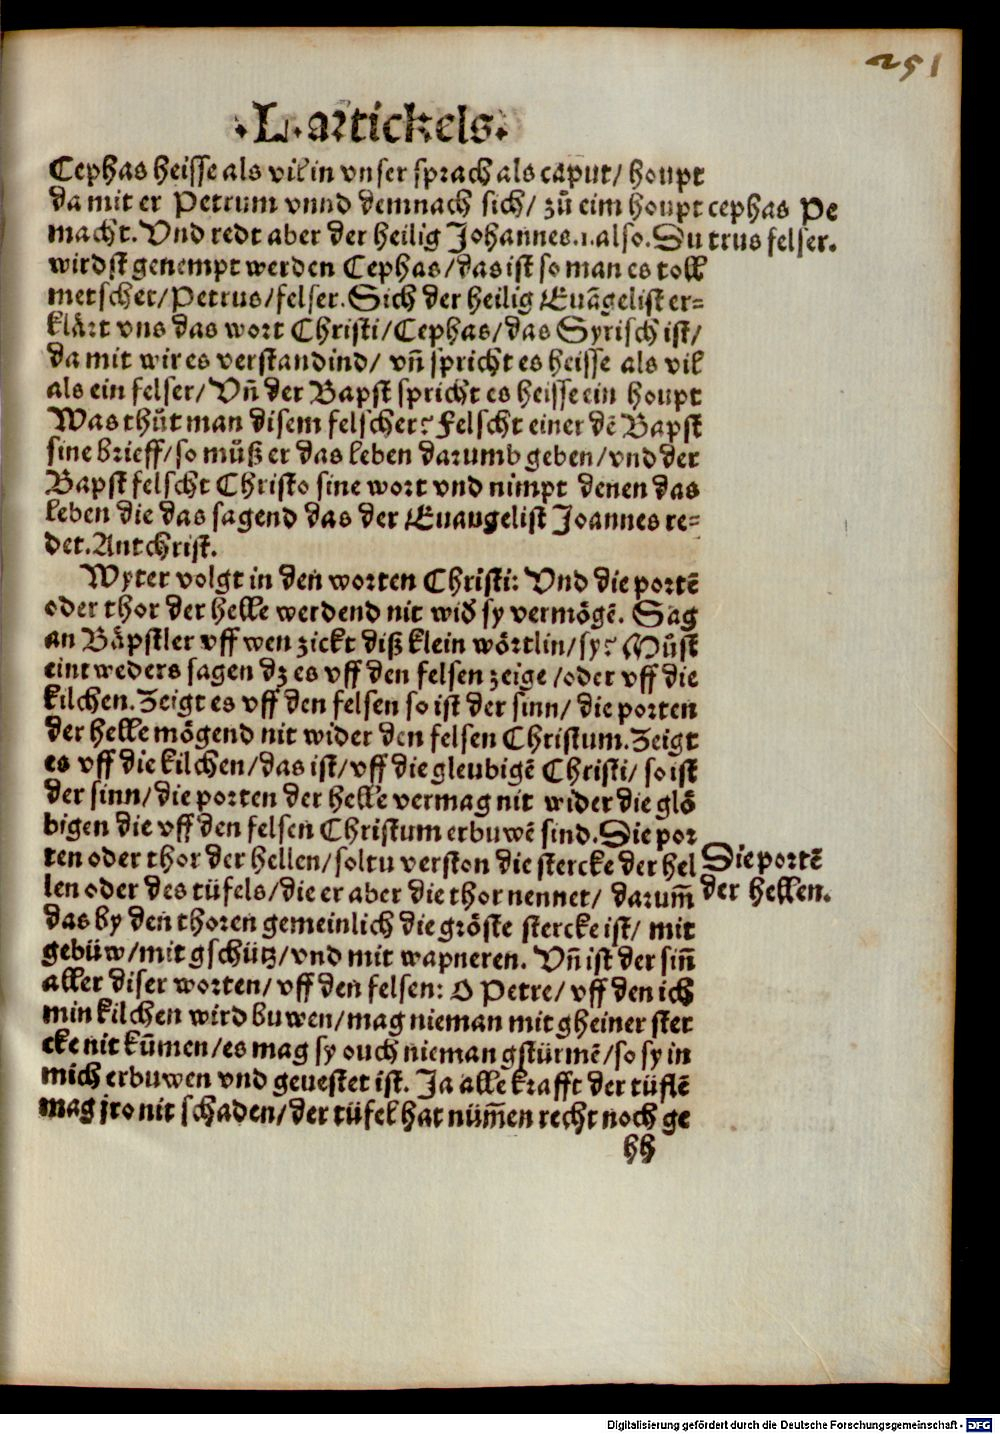 251
.L. artickels.
Cephas heisse als vil in vnser sprach als caput/ houpt
da mit er Petrum vnnd demnach sich/ zů eim houpt
macht. Vnd redt aber der heilig Johannes.1. also. Du
cephas Pe
trus felser.
wirdst genempt werden Cephas/ das ist so man es toll
metschet/ Petrus/ felser. Sich der heilig Euãgelist er⸗
klärt vns das wort Christi/ Cephas/ das Syrisch ist/
da mit wir es verstandind/ vñ spricht es heisse als vil
als ein felser/ Vñ der Bapst spricht es heisse ein houpt
Was thůt man disem felscher? Felscht einer dẽ Bapst
sine brieff/ so můß er das leben darumb geben/ vnd der
Bapst felscht Christo sine wort vnd nimpt denen das
leben die das sagend das der Euangelist Joannes re⸗
det. Antchrist.
Wyter volgt in den worten Christi: Vnd die portẽ
oder thor der helle werdend nit wid̕ sy vermögẽ. Sag
an Bäpstler vff wen zickt diß klein wörtlin/ sy? Můst
eintweders sagen dz es vff den felsen zeige/ oder vff die
kilchen. Zeigt es vff den felsen so ist der sinn/ die porten
der helle mögend nit wider den felsen Christum. Zeigt
es vff die kilchen/ das ist/ vff die gleubigẽ Christi/ so ist
der sinn/ die porten der helle vermag nit wider die glö
bigen die vff den felsen Christum erbuwẽ sind. Die por
ten oder thor der hellen/ soltu verston die stercke der hel
len oder des tüfels/ die er aber die thor nennet/ darum̃
Die portẽ
der hellen.
das by den thoren gemeinlich die gröste stercke ist/ mit
gebüw/ mit gschütz/ vnd mit wapneren. Vñ ist der siñ
aller diser worten/ vff den felsen: O Petre/ vff den ich
min kilchen wird buwen/ mag nieman mit gheiner ster
cke nit kũmen/ es mag sy ouch nieman gstürmẽ/ so sy in
mich erbuwen vnd geuestet ist. Ja alle krafft der tüflẽ
mag jro nit schaden/ der tüfel hat nüm̃en recht noch ge
hh
Digitalisierung gefördert durch die Deutsche Forschungsgemeinschaft - DFG